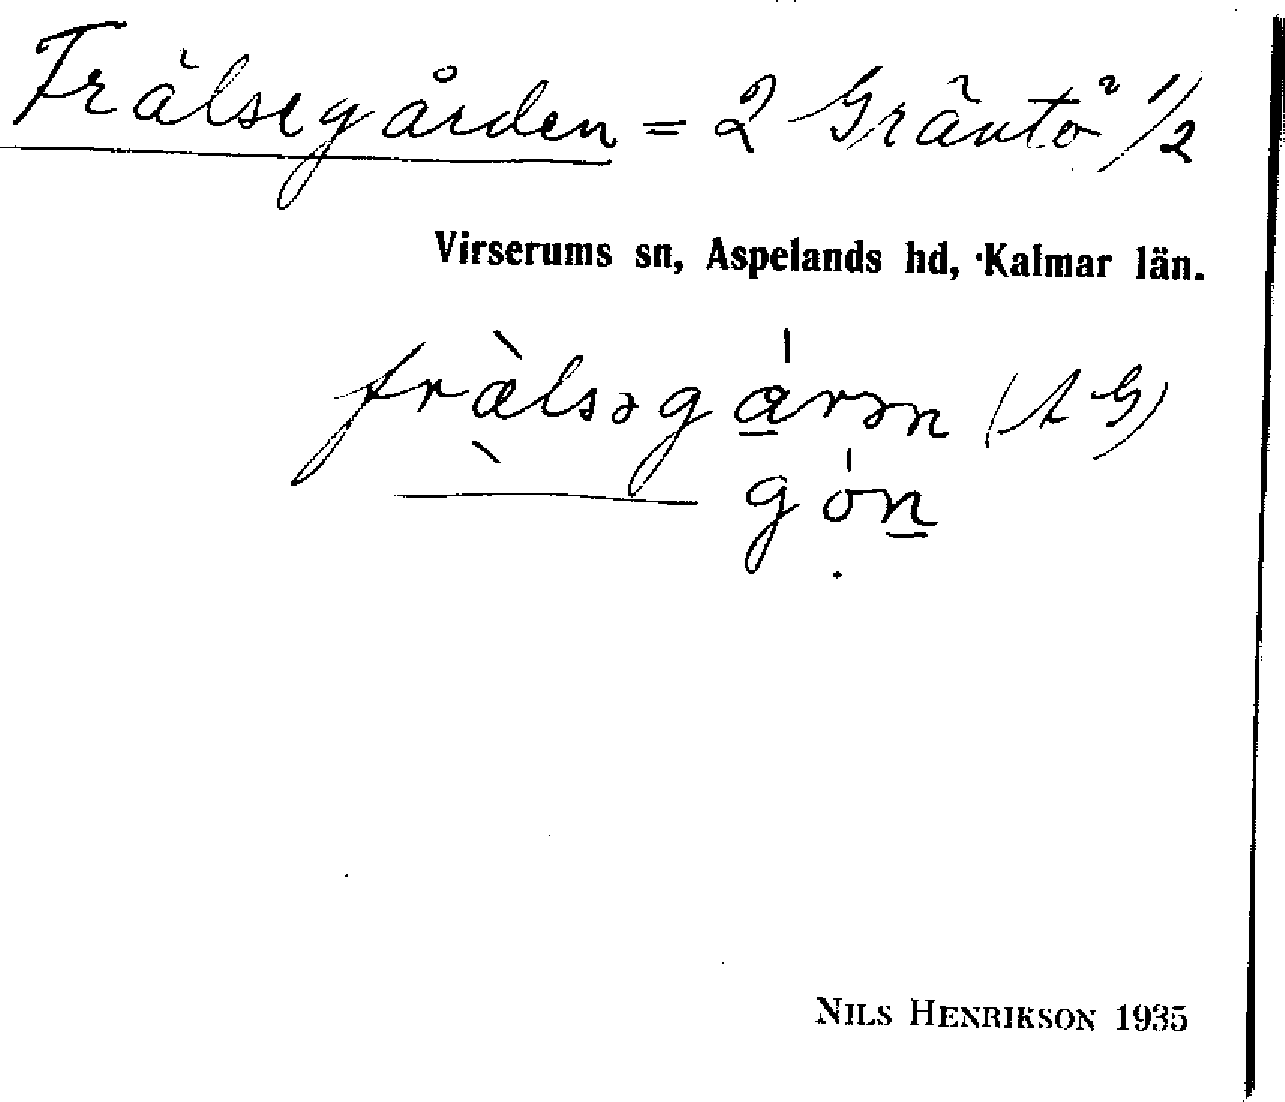 Frälsegården = 2 Gräntö 1/2
Virserums sn, Aspelands hd, Kalmar län.
fràlsəgárən (A G)
gón
NILS HENRIKSON 1935